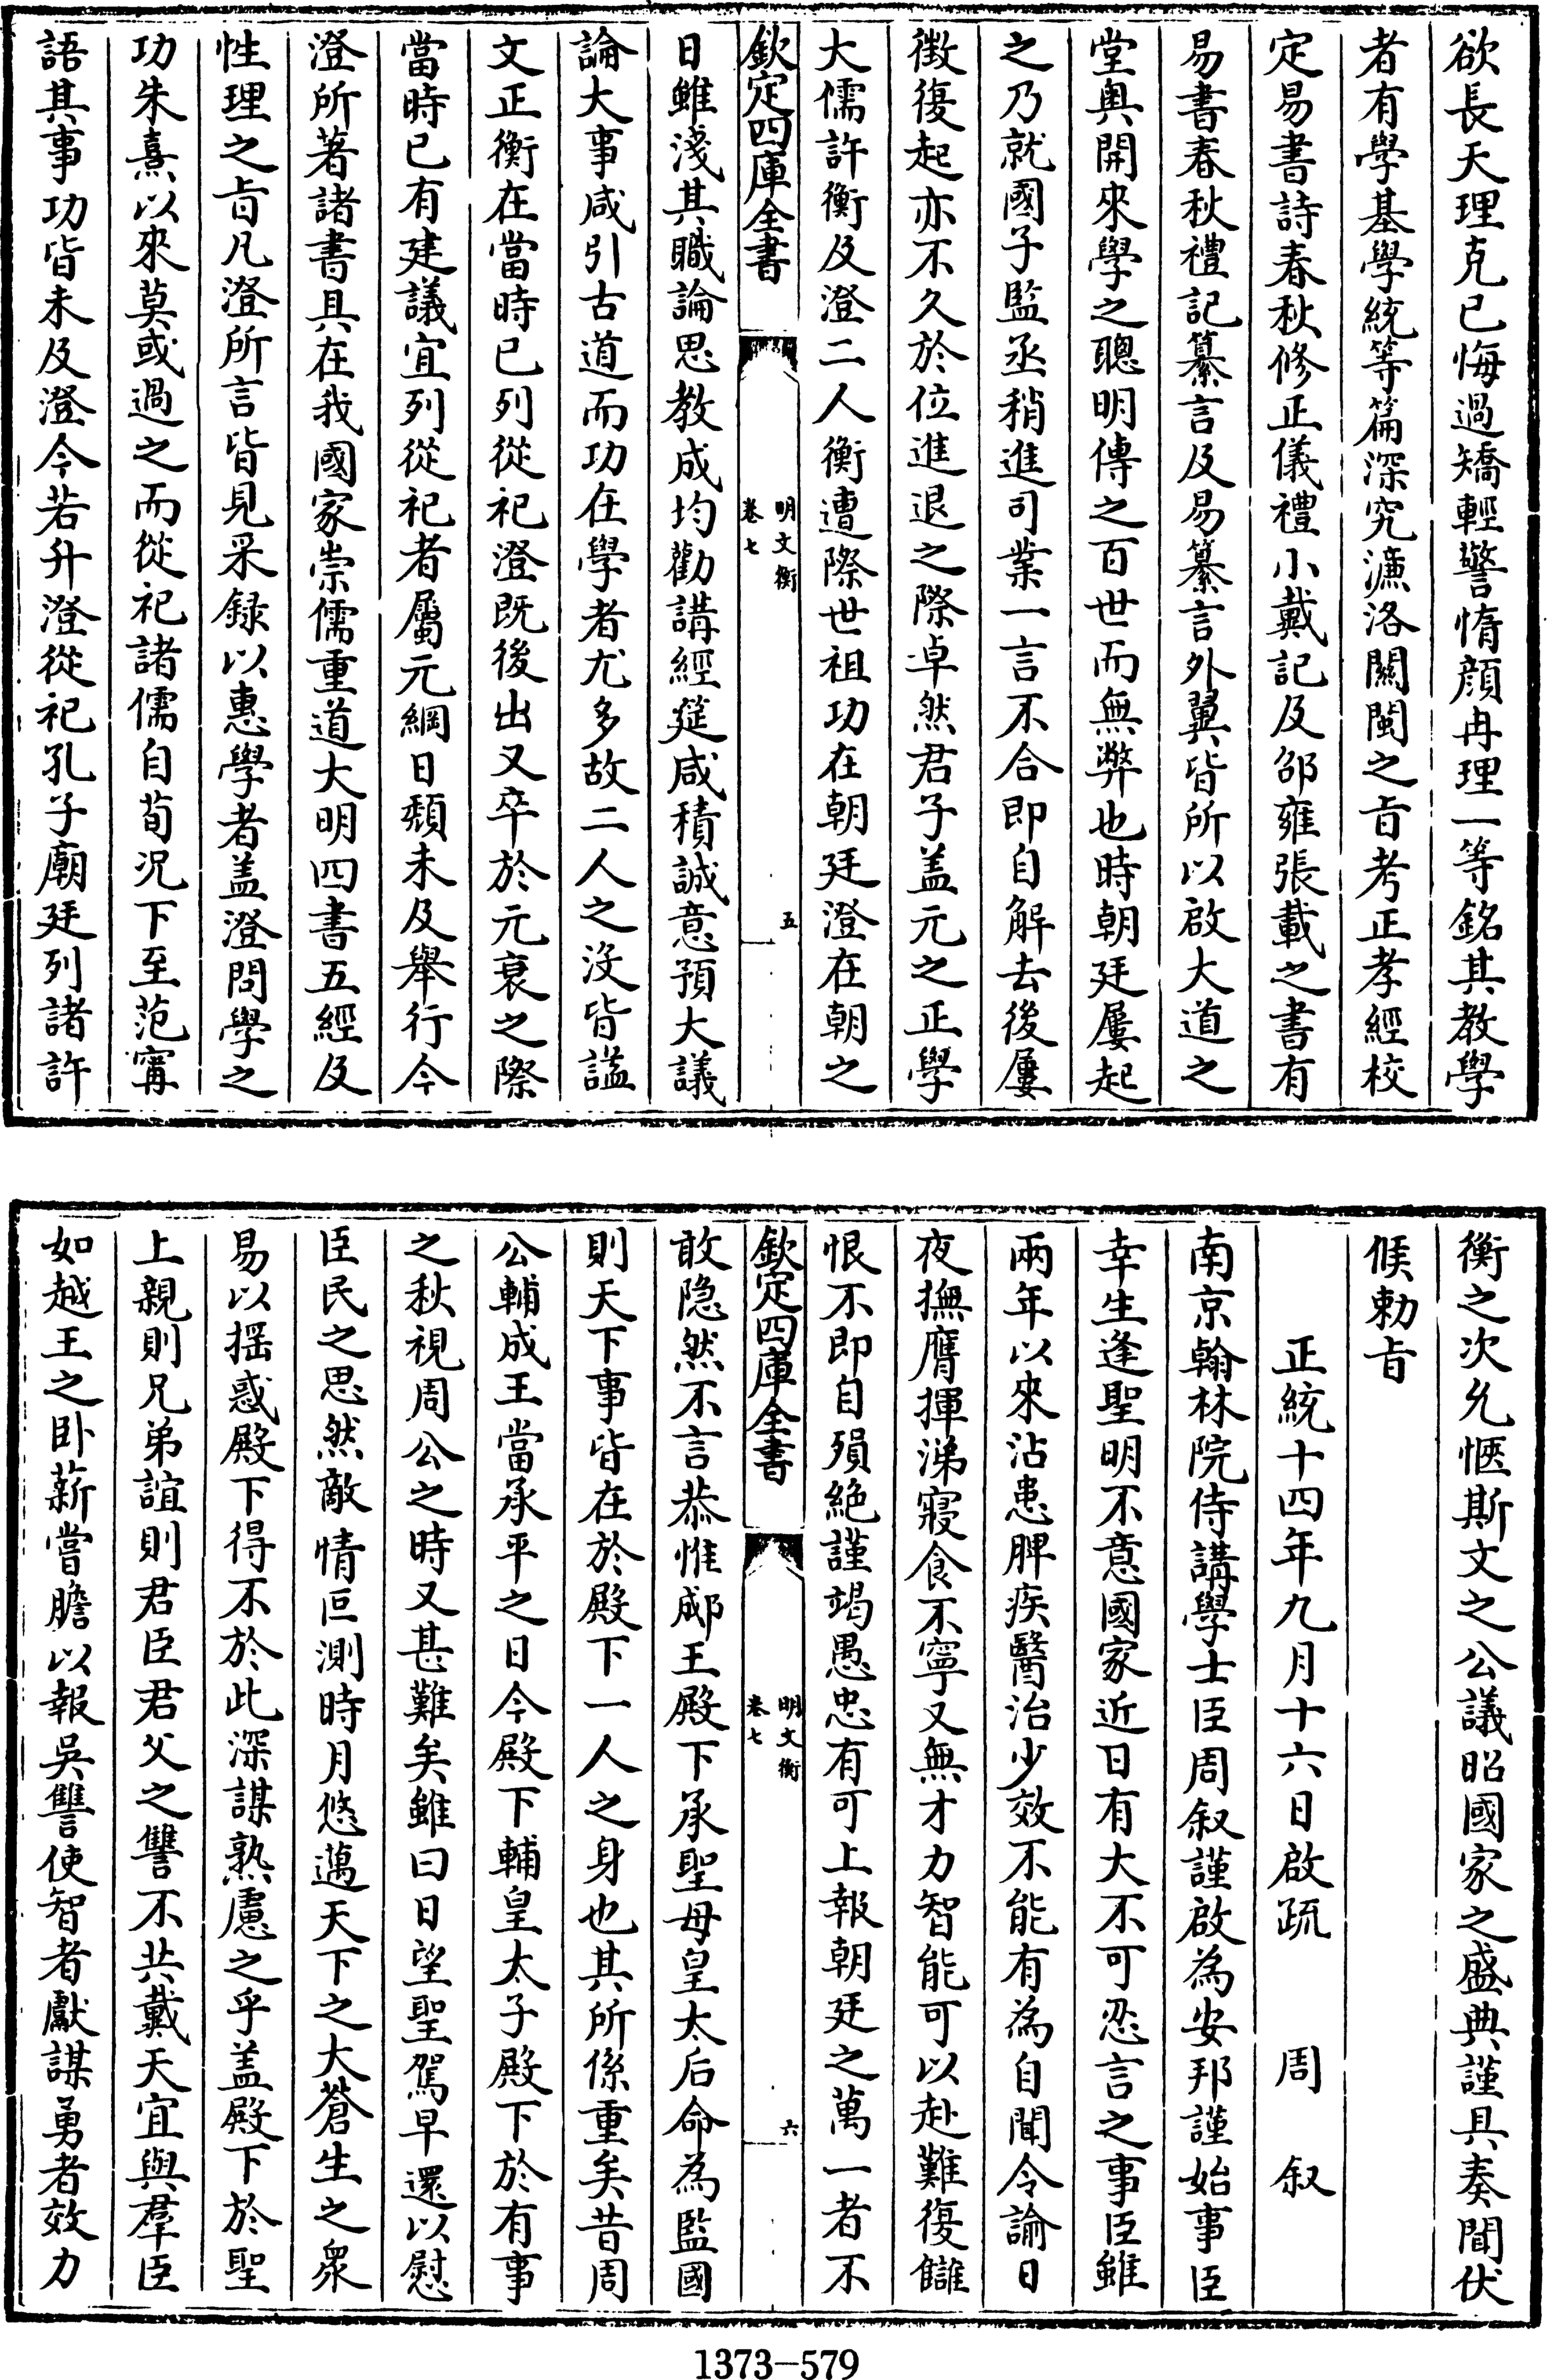 欲長天理克已悔過矯輕警惰顔冉理一等銘其教學
者有學基學統等篇深究濂洛關閩之㫖考正孝經校
定易書詩春秋修正儀禮小戴記及邵雍張載之書有
易書春秋禮記纂言及易纂言外翼皆所以啟大道之
堂奥開來學之聰明傳之百世而無弊也時朝廷屢起
之乃就國子監丞稍進司業一言不合即自解去後屢
徴復起亦不久於位進退之際卓然君子盖元之正學
大儒許衡及澄二人衡遭際世祖功在朝廷澄在朝之
欽定四庫全書
明文衡
卷七
五
日雖淺其職論思教成均勸講經筵咸積誠意預大議
論大事咸引古道而功在學者尤多故二人之沒皆諡
文正衡在當時已列從祀澄既後出又卒於元衰之際
當時已有建議宜列從祀者屬元綱日頽未及舉行今
澄所著諸書具在我國家崇儒重道大明四書五經及
性理之㫖凡澄所言皆見采録以惠學者盖澄問學之
功朱熹以來莫或過之而從祀諸儒自荀况下至范甯
語其事功皆未及澄今若升澄從祀孔子廟廷列諸許
衡之次允愜斯文之公議昭國家之盛典謹具奏聞伏
候勅㫖
正統十四年九月十六日啟疏 周叙
南京翰林院侍講學士臣周叙謹啟為安邦謹始事臣
幸生逢聖明不意國家近日有大不可忍言之事臣雖
兩年以來沾患脾疾醫治少效不能有為自聞令諭日
夜撫膺揮涕寢食不寧又無才力智能可以赴難復讎
恨不即自殞絶謹竭愚忠有可上報朝廷之萬一者不
欽定四庫全書
明文衡
卷七
六
敢隐然不言恭惟郕王殿下承聖母皇太后命為監國
則天下事皆在於殿下一人之身也其所係重矣昔周
公輔成王當承平之日今殿下輔皇太子殿下於有事
之秋視周公之時又甚難矣雖曰日望聖駕早還以慰
臣民之思然敵情叵測時月悠邁天下之大蒼生之衆
易以揺惑殿下得不於此深謀熟慮之乎盖殿下於聖
上親則兄弟誼則君臣君父之讐不共戴天宜與羣臣
如越王之卧薪嘗膽以報吳讐使智者獻謀勇者效力
1373-579